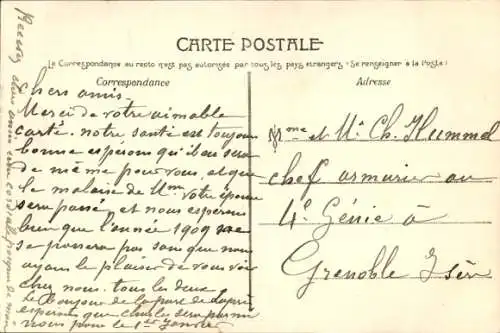 CARTE POSTALE
La Correspondance au recto n'est pas autorisée par tous les pays étrangers (Se renseigner à la Poste)
Correspondance
Adresse
Chers amis.
Merci de votre aimable
carte. notre santé est toujours
bonne espérons qu'il en sera
de même pour vous, et que
le malaise de Mme votre épouse
sera passé, et nous espérons
bien que l'année 1909 ne
se passera pas sans que nous
ayons le plaisir de vous voir
chez nous. tous les deux
Le bonjour de la part de
espérons que sera parmi
nous pour le 1er Janvier
Mme et Mr Ch. Hummel
chef armurier au
4e Génie à
Grenoble Isère